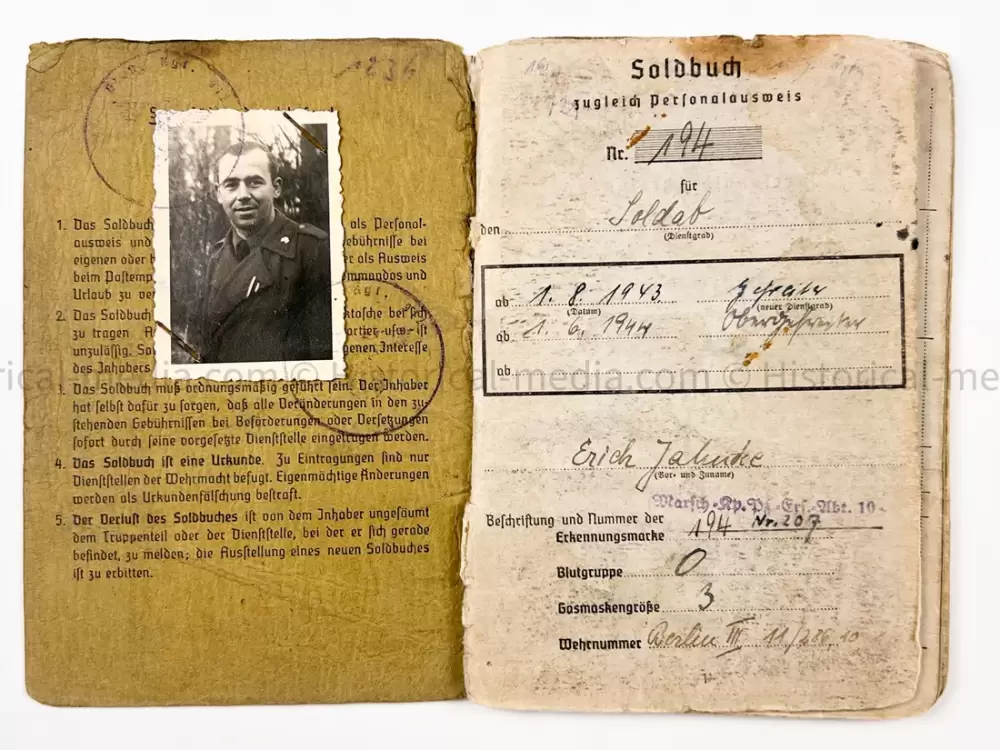 1236
1. Das Soldbuch als Personal-
ausweis und ebührnisse bei
eigenen oder als Ausweis
beim Postemp ommandos und
Urlaub zu
2. Das Soldbuch tasche bei sich
zu tragen. A usw. ist
unzulässig. Sol genen Interesse
des Inhabers
3. Das Soldbuch muß ordnungsmäßig geführt sein. Der Inhaber
hat selbst dafür zu sorgen, daß alle Veränderungen in den zu-
stehenden Gebührnissen bei Beförderungen oder Versetzungen
sofort durch seine vorgesetzte Dienststelle eingetragen werden.
4. Das Soldbuch ist eine Urkunde. Zu Eintragungen sind nur
Dienststellen der Wehrmacht befugt. Eigenmächtige Änderungen
werden als Urkundenfälschung bestraft.
5. Der Verlust des Soldbuches ist von dem Inhaber ungesäumt
dem Truppenteil oder der Dienststelle, bei der er sich gerade
befindet, zu melden; die Ausstellung eines neuen Soldbuches
ist zu erbitten.
Soldbuch
zugleich Personalausweis
Nr. 194
für
den Soldat
(Dienstgrad)
ab 1. 8. 1943 Gefreiter
(Datum) (neuer Dienstgrad)
ab 1. 6. 1944 Obergefreiter
ab
© Historical-media.com © Historical-me
Erich Jahnke
(Vor- und Zuname)
Marsch-Kp. Pz.-Ers.-Abt. 10
Beschriftung und Nummer der
Erkennungsmarke 194 Nr. 207
Blutgruppe O
Gasmaskengröße 3
Wehrnummer Berlin III 11/206.10